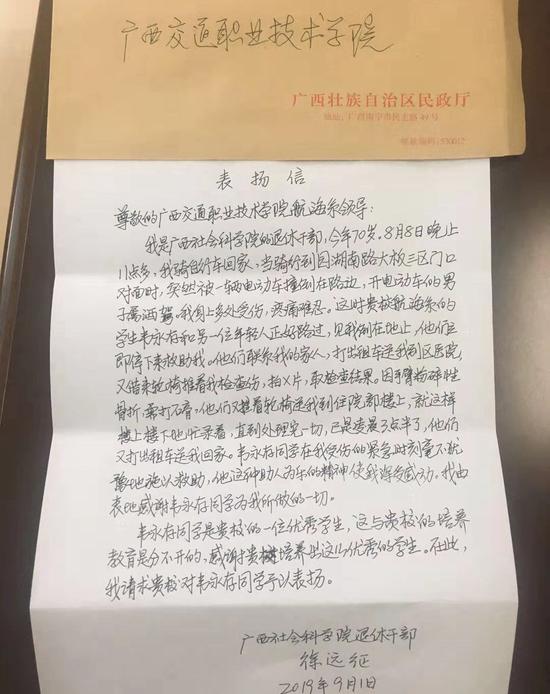 广西交通职业技术学院
广西壮族自治区民政厅
地址:广西南宁市民主路49号
邮政编码:530012
表扬信
尊敬的广西交通职业技术学院航海系领导:
我是广西社会科学院的退休干部,今年70岁。8月8日晚上
11点多,我骑自行车回家,当骑行到回湖南路大板三区门口
对面时,突然被一辆电动车撞倒在路边,开电动车的男
子属酒驾。我身上多处受伤,疼痛难忍。这时贵校航海系的
学生韦永存和另一位年轻人正好路过,见我倒在地上,他们立
即停下来救助我。他们联系我的家人,打出租车送我到区医院,
又借来轮椅推着我检查伤,拍X片,取检查结果。因手臂粉碎性
骨折需打石膏,他们又推着轮椅送我到住院部楼上,就这样
楼上楼下地忙碌着,直到处理完一切,已是凌晨3点半了,他们
又打出租车送我回家。韦永存同学在我受伤的紧急时刻毫不犹
豫地施以救助,他这种助人为乐的精神使我深受感动。我由
衷地感谢韦永存同学为我所做的一切。
韦永存同学是贵校的一位优秀学生,这与贵校的培养
教育是分不开的,感谢贵校培养出这么优秀的学生。在此,
我请求贵校对韦永存同学予以表扬。
广西社会科学院退休干部
徐远征
2019年9月1日